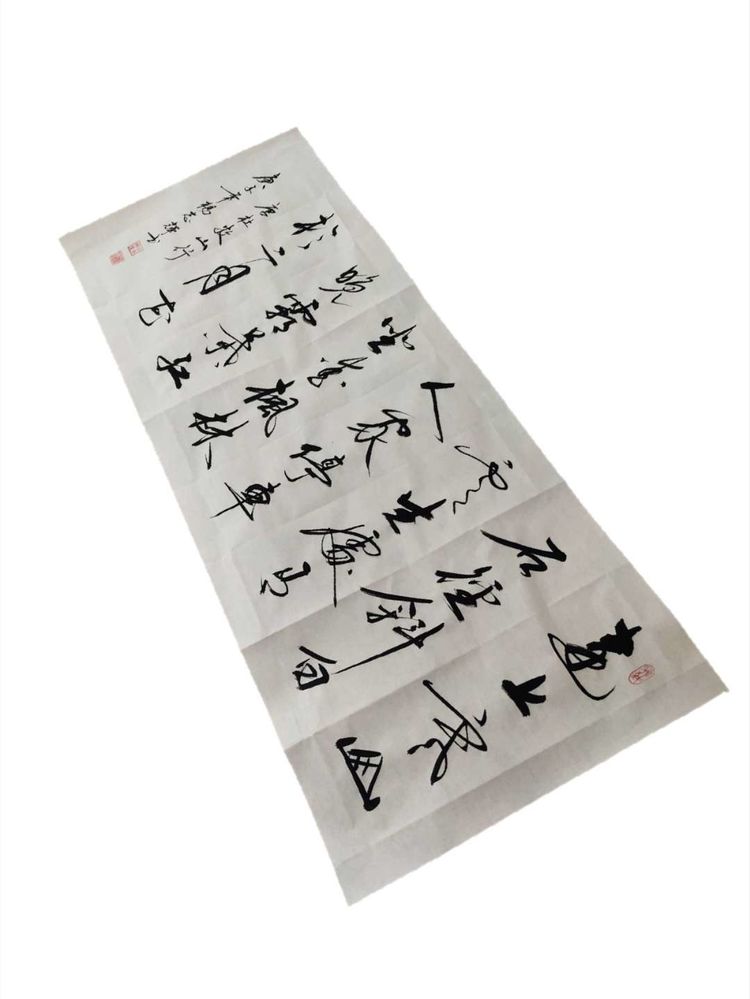 遠上寒山
石徑斜白
雲生處有
人家停車
坐爱楓林
晚霜葉红
於二月花
唐杜牧山行
庚子年楊志輝書